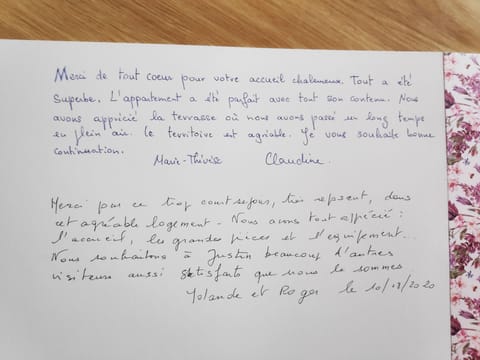 Merci de tout coeur pour votre accueil chaleureux. Tout a été
superbe. L'appartement a été parfait avec tout son contenu. Nous
avons apprécié la terrasse où nous avons passé un long temps
en plein air. Le territoire est agréable. Je vous souhaite bonne
continuation.
Marie-Thérèse Claudine
Merci par ce trop court sejour, très reposant, dans
cet agréable logement. Nous avons tout apprécié :
l'accueil, les grandes pièces et l'équipement...
Nous souhaitons à Justin beaucoup d'autres
visiteurs aussi satisfaits que nous le sommes
Yolande et Roger le 10/ /2020